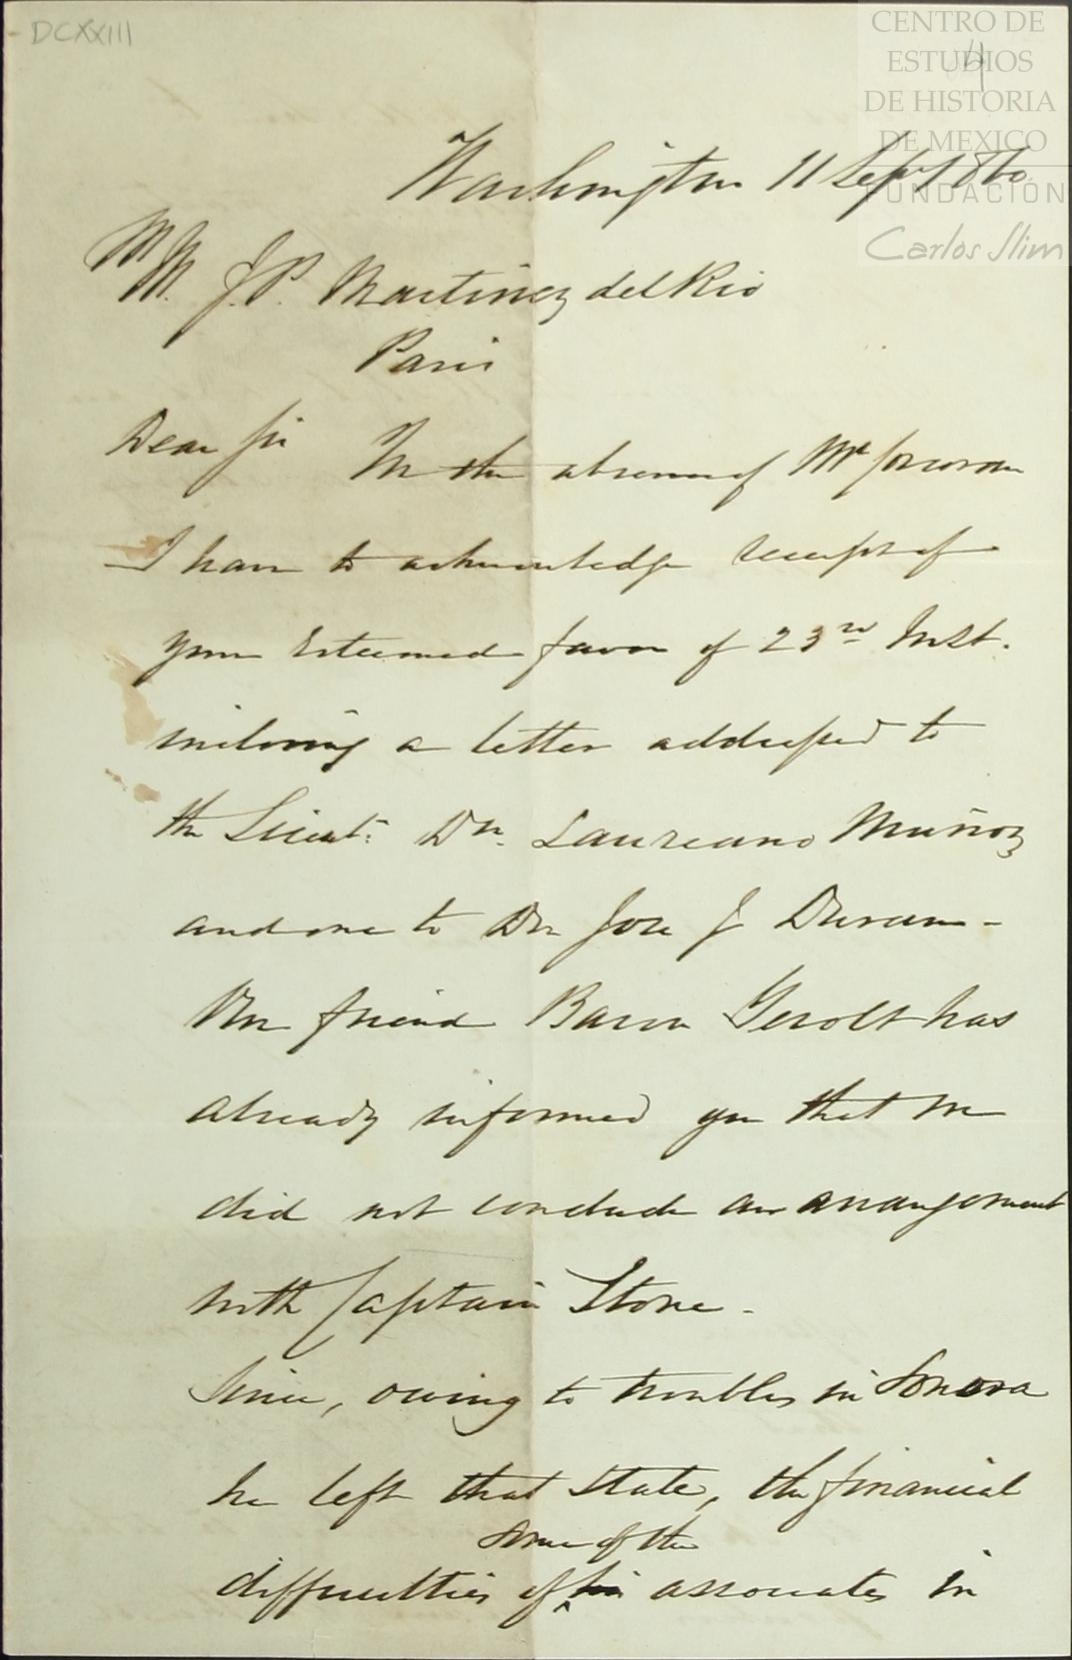 DCXXIII
4
CENTRO DE
ESTUDIOS
DE HISTORIA
DE MEXICO
FUNDACIÓN
Carlos Slim
Washington 11 Sept 1860
J. P. Martinez del Rio
Paris
Dear Sir In the absence of Mr Corcoran
I have to acknowledge receipt of
your esteemed favor of 23rd Inst.
inclosing a letter addressed to
the Licent: Dn. Laureano Muñoz
and one to Dn Jose J Duran -
Our friend Baron Gerolt has
already informed you that we
did not conclude an arrangement
with Captain Stone -
Since, owing to troubles in Sonora
he left that State, the financial
some of the
difficulties of his associates in